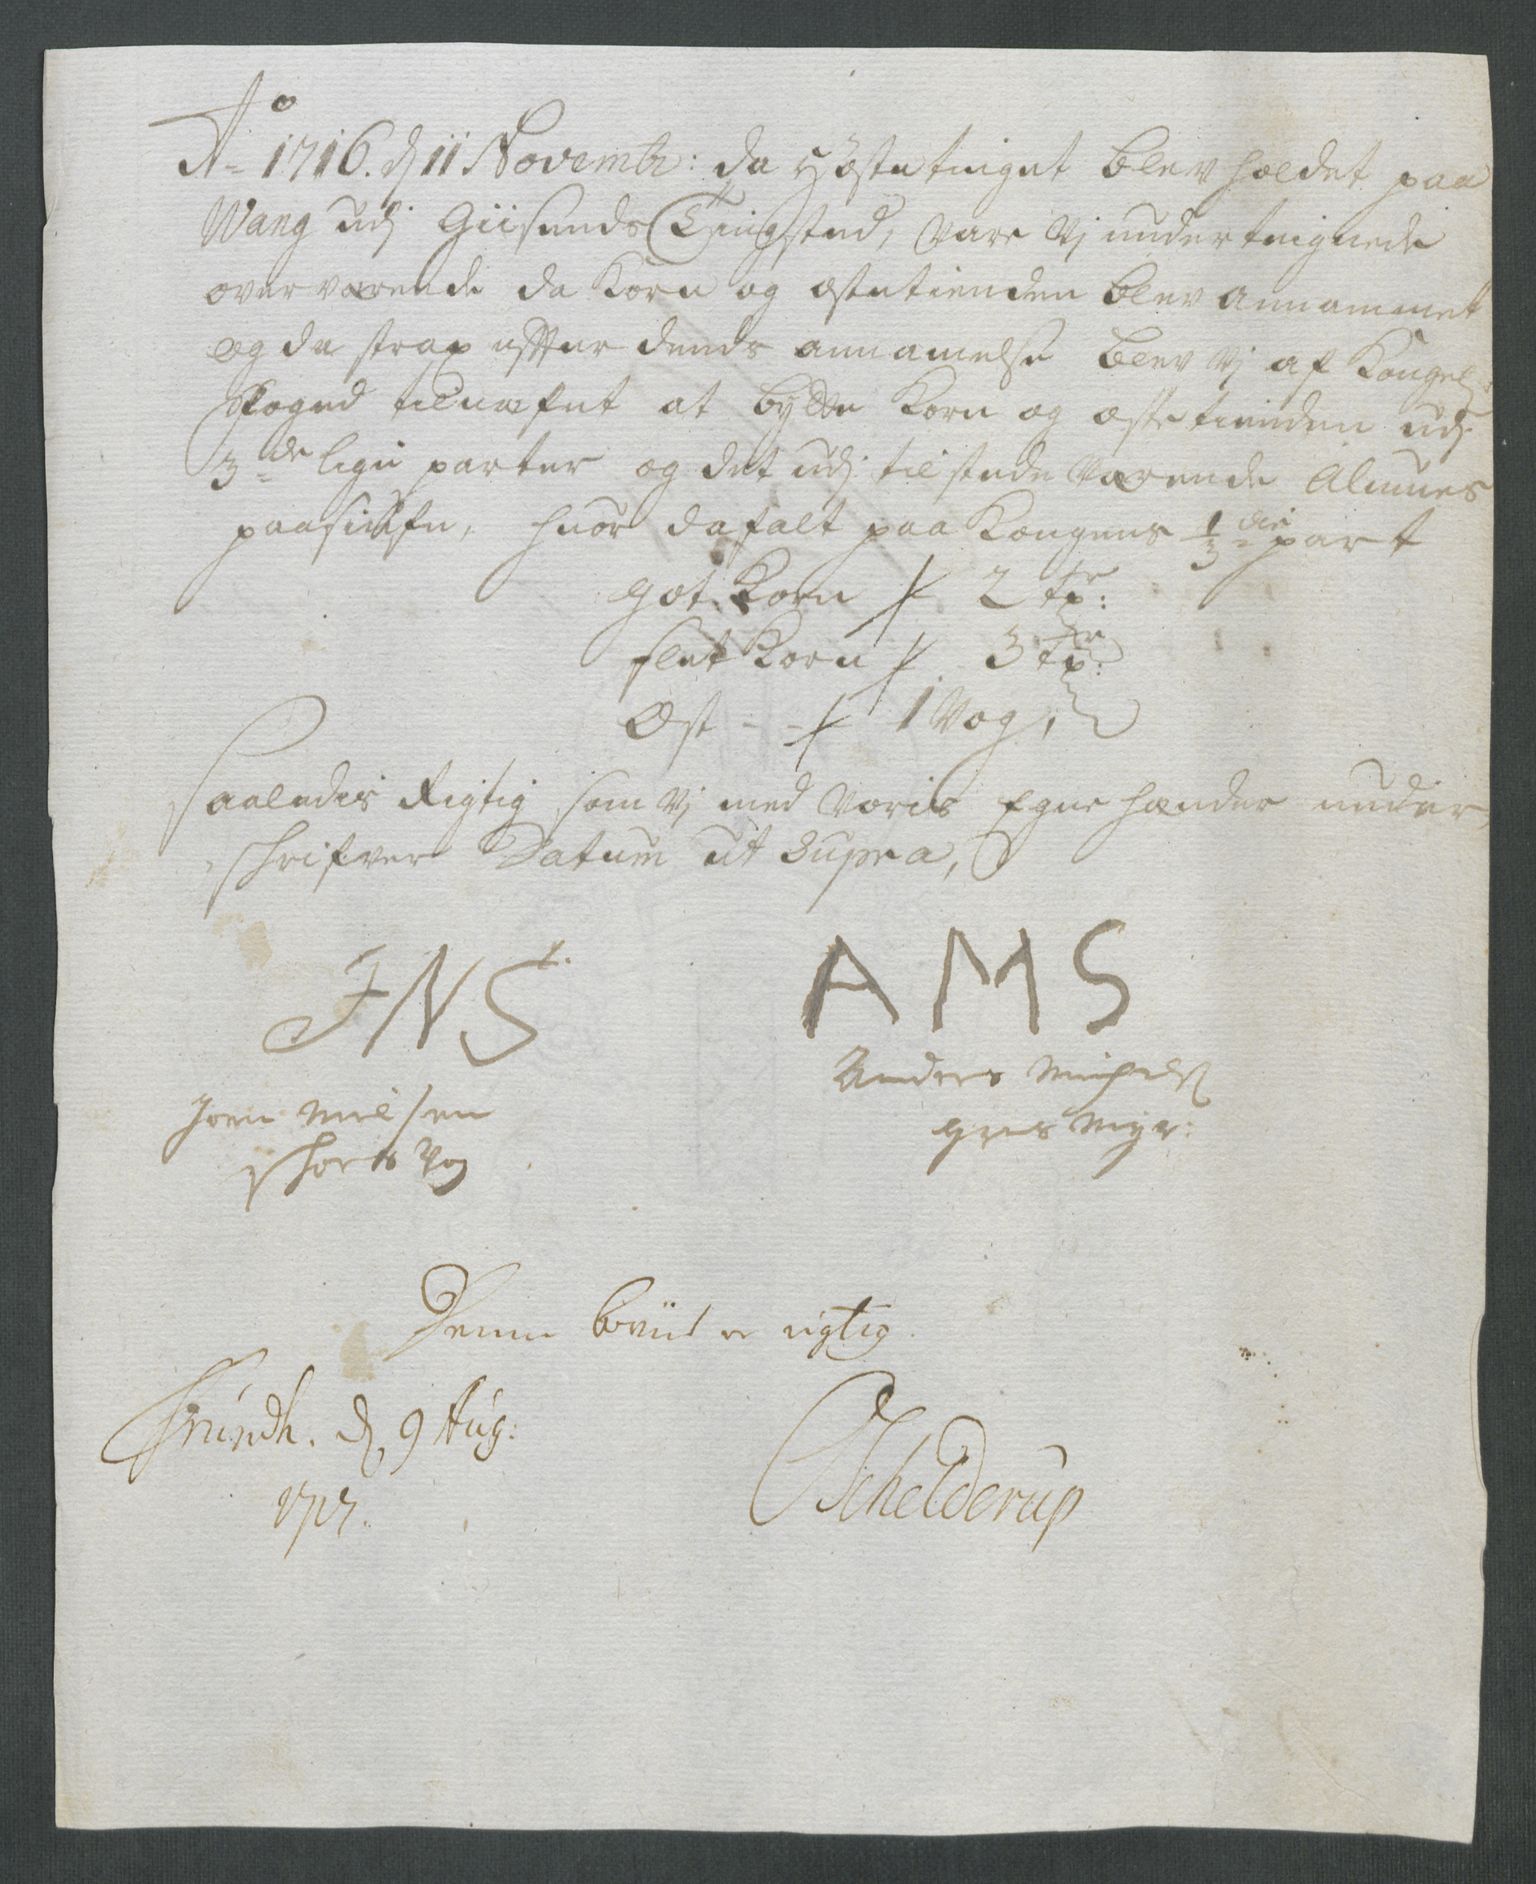 Ao 1716. d 11 Novembr: da Höstetinget blev holdet paa
Wang udj Giisunds Tingsted, vare vj undertegnede
overværende da Korn og ostetienden blev annammet
og da strax effter dends annamelse blev vj af Kongel:
Foged tilnefnt at bÿtte Korn og ostetienden udj
3de lige parter og det udj tilstedeværende Almues
paasiufn, huor da falt paa Kongens 1/3die part
got Korn / 2 tpr:
slet Korn / 3 tpr:
Ost - - / 1 Vog,
Saaledis Rigtig som vj med voris Egne hænder under
schrifver Datum ut Supra,
INS AMS
Joen Nielsen Anders Michels
gres Myr:
Denne beviis er rigtig.
Trundh. d 9 Aug:
1717. Schelderup